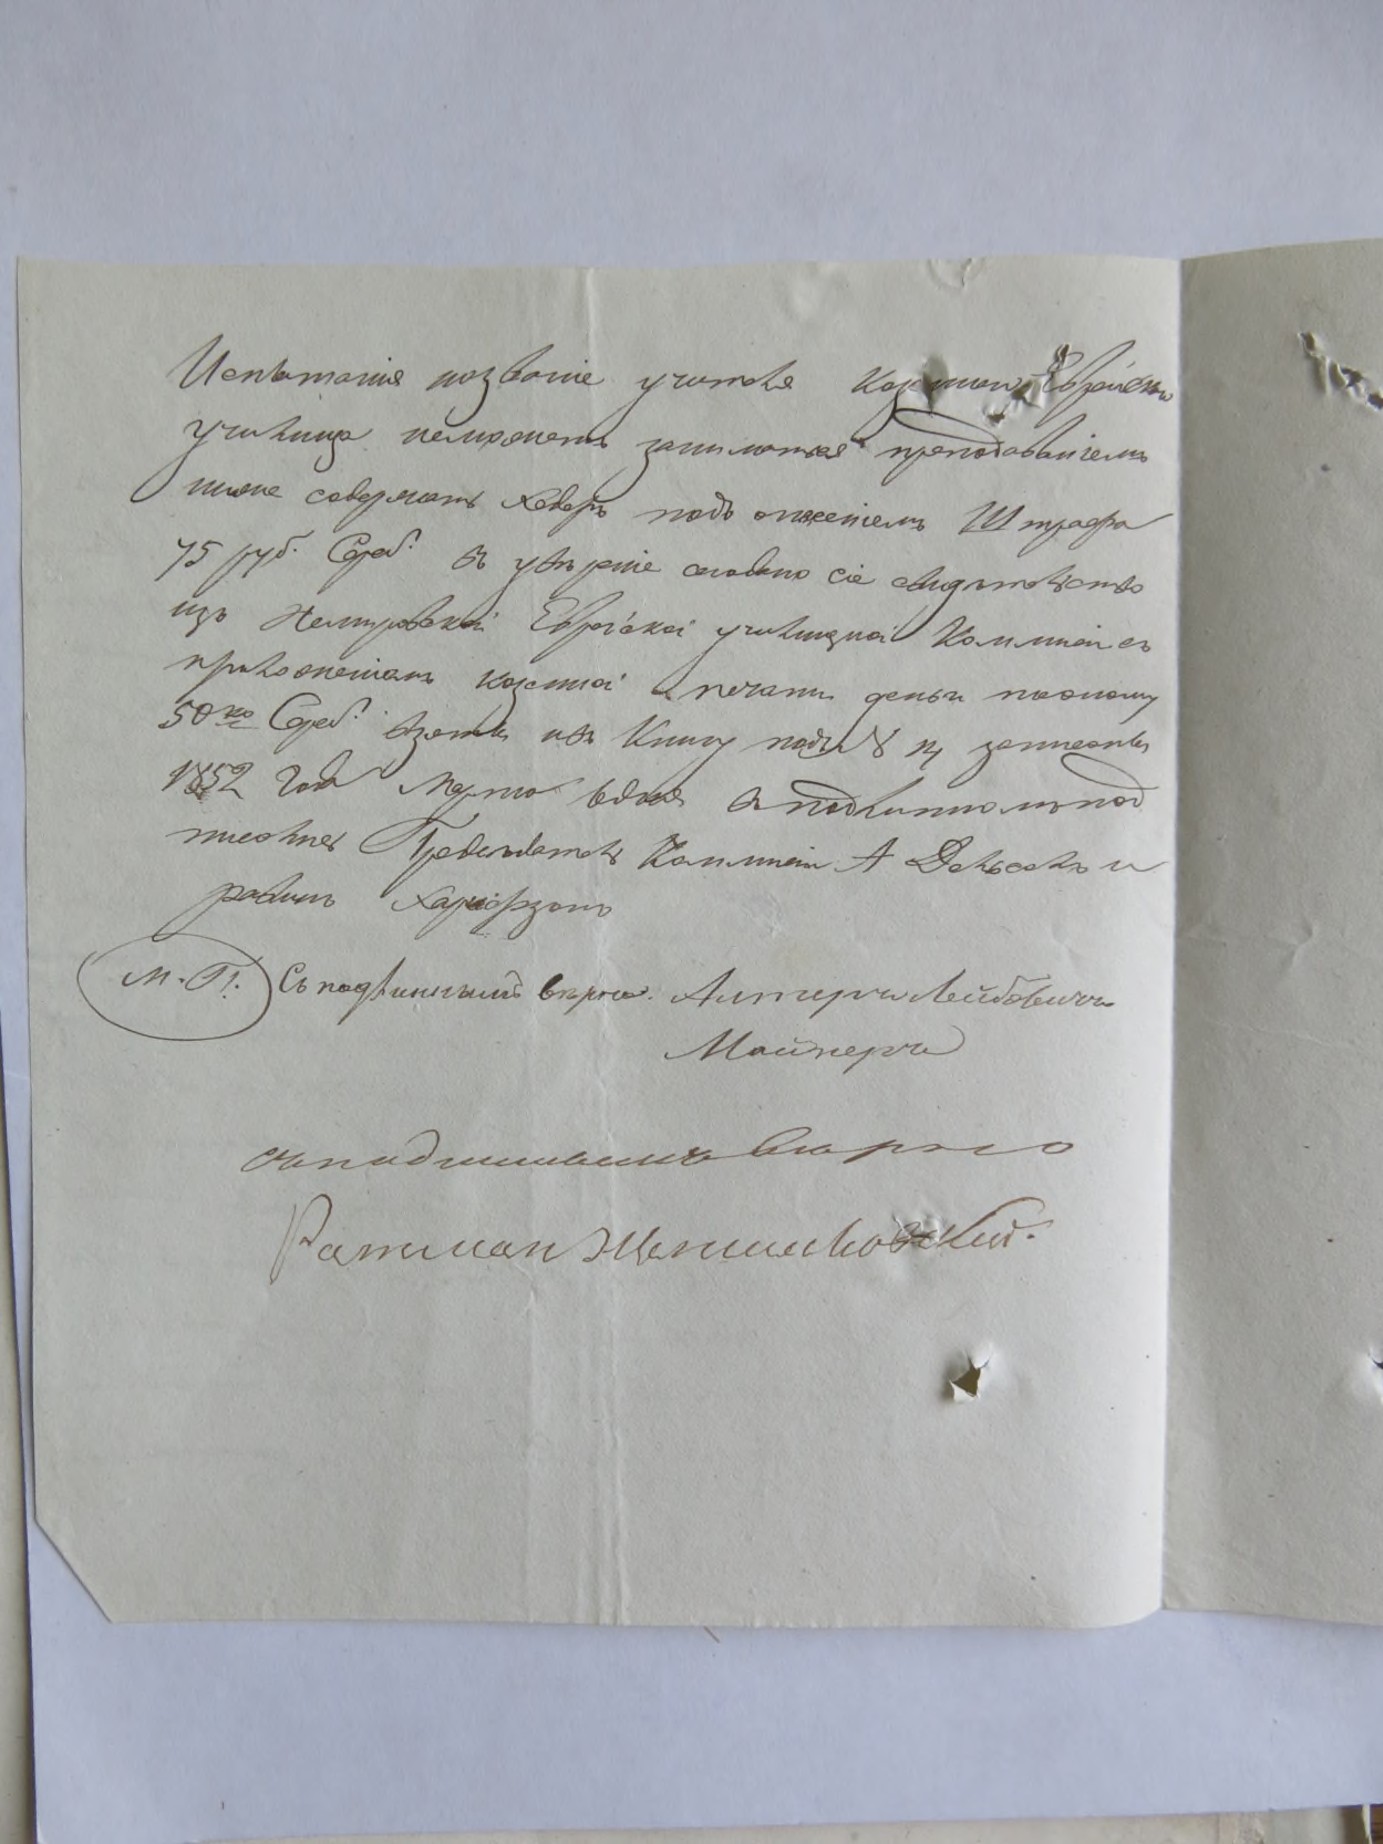 Испытанія названіе учителя казенаго Еврейскаго
училища неможетъ заниматся преподаваніемъ
ниже содержать хедеръ подъ опасеніемъ Штрафа
75 руб. Сереб. въ увѣреніе сіе свидѣтельство
изъ Немировской Еврейской училищной Коммисіи съ
приложеніемъ казенной печати деньги
50 ко Сереб. взяты и въ Книгу подъ № записаны
1852 Года Марта дня въ подлинномъ под
писались Предсѣдатель Коммисіи А и
равинъ
М. П. Съ подлиннымъ вѣрно. Алтеръ Лейбовичъ
Маймеръ
съ подлиннымъ вѣрно
Ратман